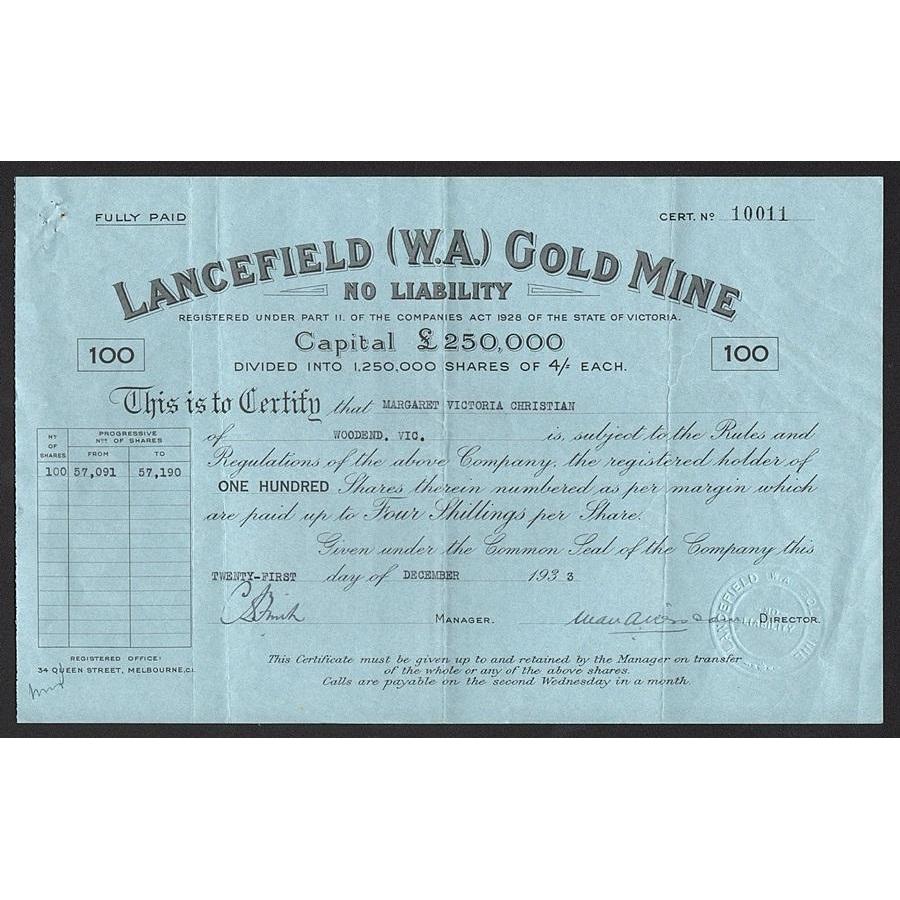 FULLY PAID
CERT. Nº 10011
LANCEFIELD (W.A.) GOLD MINE
NO LIABILITY
REGISTERED UNDER PART II. OF THE COMPANIES ACT 1928 OF THE STATE OF VICTORIA.
Capital £250,000
100
100
DIVIDED INTO 1,250,000 SHARES OF 4/= EACH.
This is to Certify that MARGARET VICTORIA CHRISTIAN
of WOODEND, VIC. is, subject to the Rules and
Regulations of the above Company, the registered holder of
ONE HUNDRED Shares therein numbered as per margin which
are paid up to Four Shillings per Share.
Given under the Common Seal of the Company this
TWENTY-FIRST day of DECEMBER 1933
MANAGER.
DIRECTOR.
Nº OF SHARES
PROGRESSIVE Nºs OF SHARES
FROM TO
100 57,091 57,190
REGISTERED OFFICE:
34 QUEEN STREET, MELBOURNE, C.1.
This Certificate must be given up to and retained by the Manager on transfer
of the whole or any of the above shares.
Calls are payable on the second Wednesday in a month.
LANCEFIELD W.A.
NO
LIABILITY